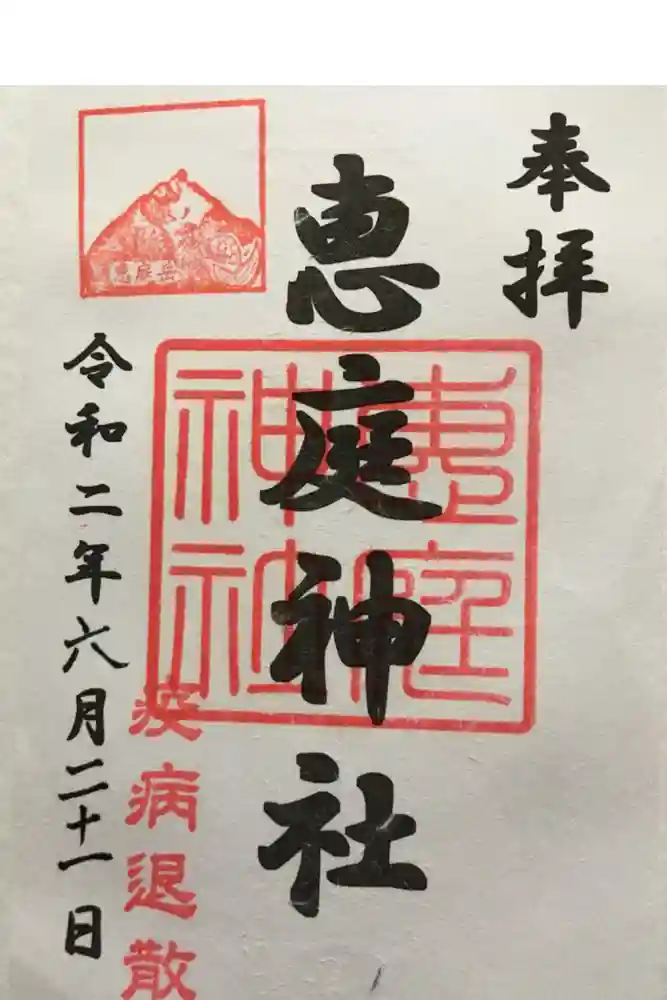 奉拝
恵庭神社
恵庭神社
恵庭岳
疫病退散
令和二年六月二十一日